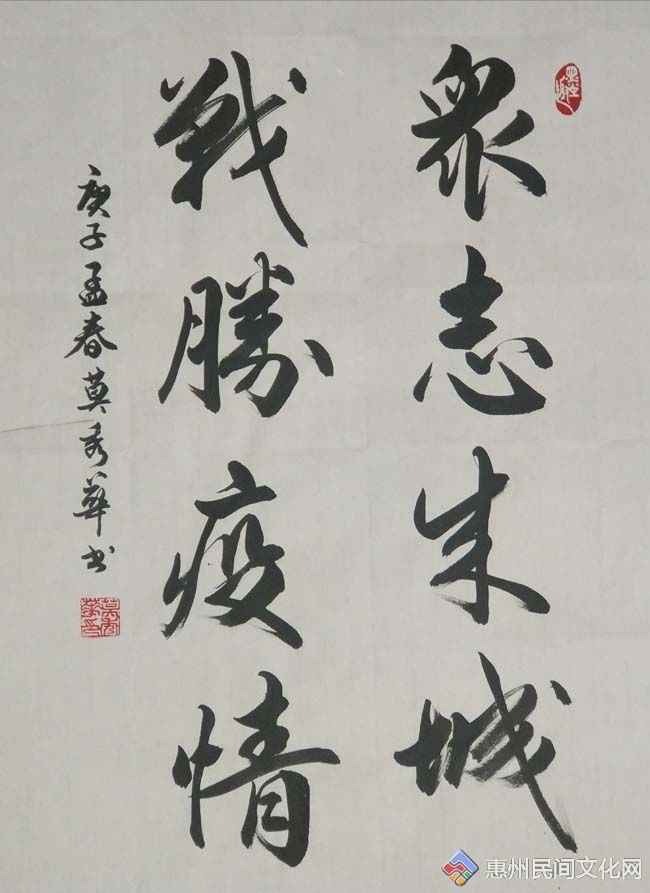 眾志成城
戰勝疫情
庚子孟春莫秀華书
惠州民间文化网